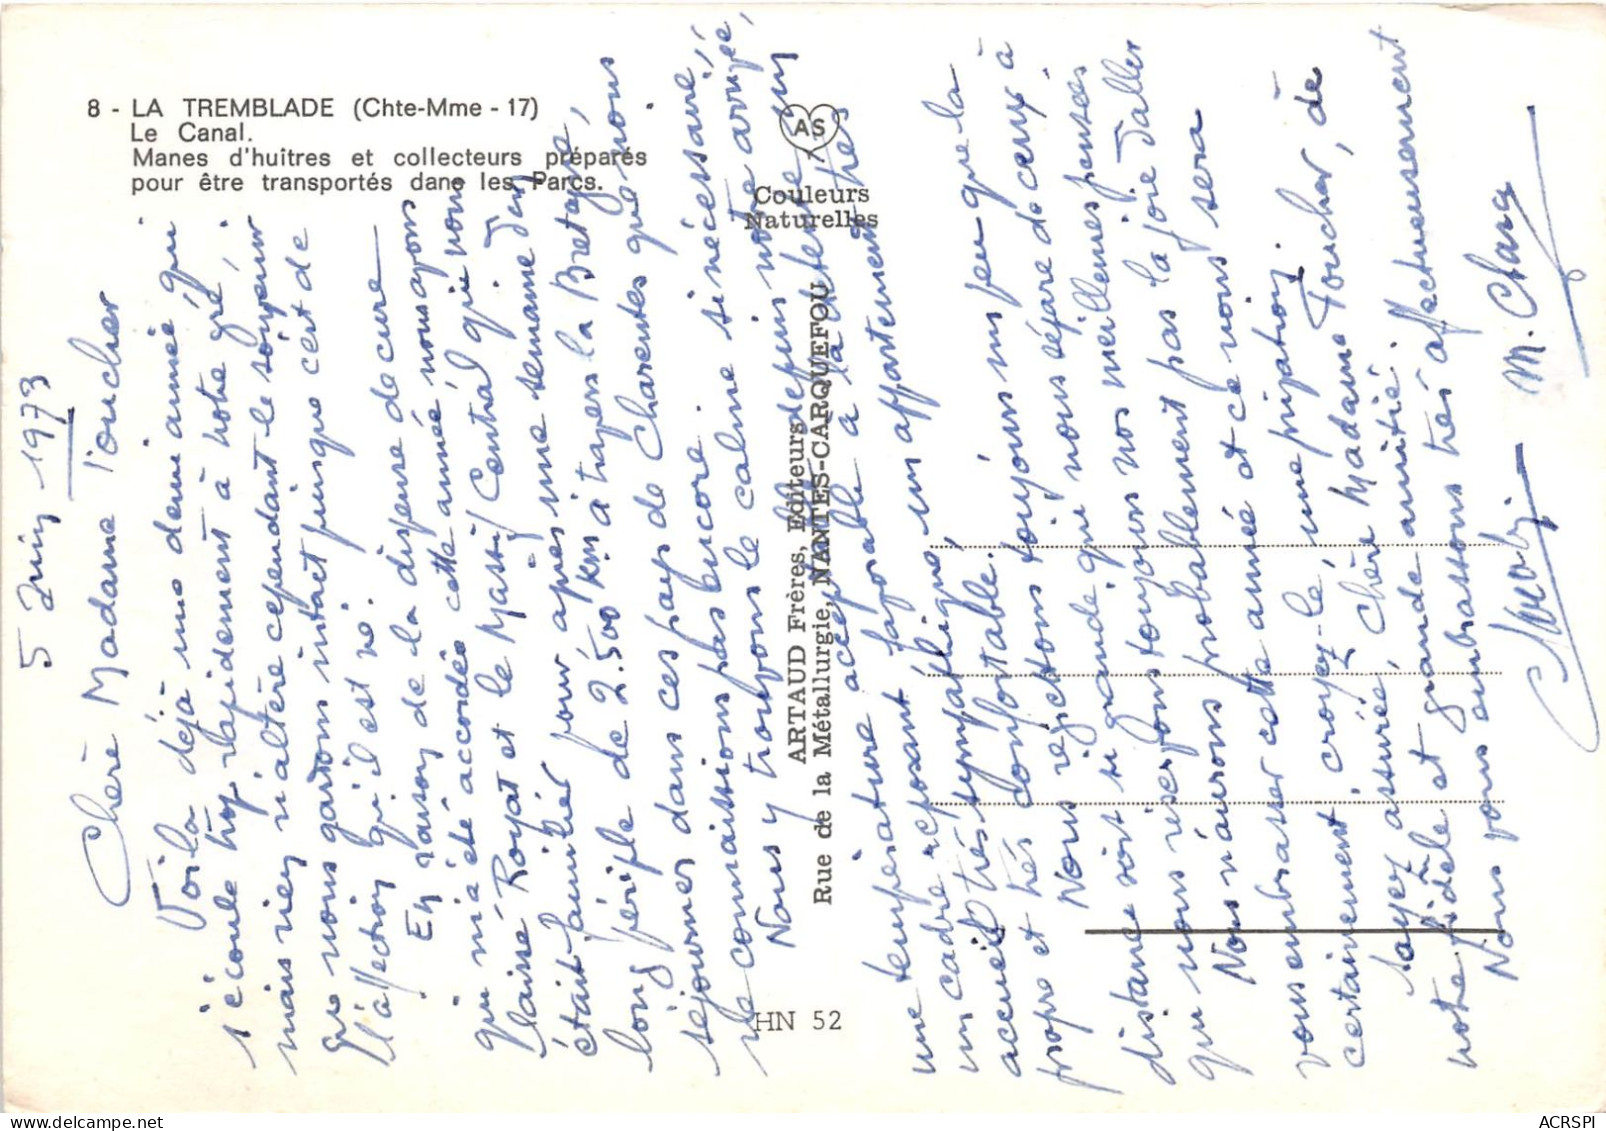 8 - LA TREMBLADE (Chte-Mme - 17)
Le Canal.
Manes d'huîtres et collecteurs préparés
pour être transportés dans les Parcs.
AS
Couleurs
Naturelles
ARTAUD Frères, Editeurs
Rue de la Métallurgie, NANTES-CARQUEFOU
HN 52
5 Juin 1973
Chère Madame Foucher
Voilà déjà une demi année, qui
s'écoule trop rapidement à notre gré,
mais rien n'altère cependant le souvenir
que nous gardons intact puisque c'est de
l'affection qu'il est né.
En raison de la dispense de cure
qui m'a été accordée cette année nous avons
laissé Royat et le Massif Central qui nous
était familier pour, après une semaine d'un
long périple de 2.500 km à travers la Bretagne,
séjourner dans ces pays de Charentes que nous
ne connaissions pas encore.
Nous y trouvons le calme si nécessaire,
depuis notre arrivée,
une température favorable à la détente
un cadre reposant un appartement très
acceptable
accueil très sympathique,
propre et très confortable.
Nous regrettons toujours un peu que la
distance soit si grande qui nous sépare de ceux à
qui nous réservons toujours nos meilleures pensées
Nous n'aurons probablement pas la joie d'aller
vous embrasser cette année et ce nous sera
certainement, croyez-le, une privation.
Soyez assurée, Chère Madame Foucher, de
notre fidèle et grande amitié.
Nous vous embrassons très affectueusement
M. Clara
ACRSPI